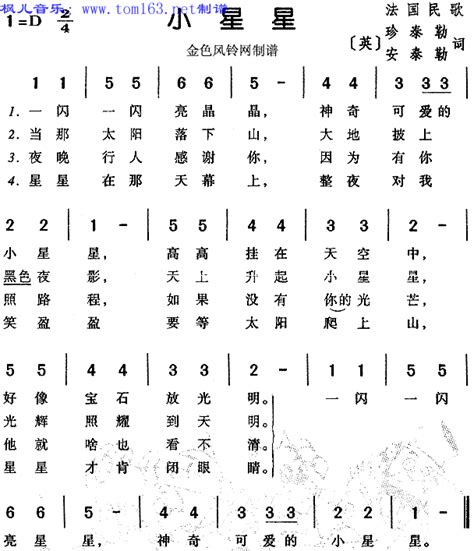 枫儿音乐 www.tom163.net制谱
1=D 2/4
小星星
法国民歌
珍泰勒
〔英〕 词
安泰勒
金色风铃网制谱
1 1 | 5 5 | 6 6 | 5 - | 4 4 | 3 3 3 |
1. 一闪一闪亮晶晶，神奇可爱的
2. 当那太阳落下山，大地披上
3. 夜晚行人感谢你，因为有你
4. 星星在那天幕上，整夜对我
2 2 | 1 - | 5 5 | 4 4 | 3 3 | 2 - |
小星星，高高挂在天空中，
黑色夜影，天上升起小星星，
照路程，如果没有你的光芒，
笑盈盈，要等太阳爬上山，
5 5 | 4 4 | 3 3 | 2 - | 1 1 | 5 5 |
好像宝石放光明。一闪一闪
光辉照耀到天明。
他就啥也看不清。
星星才肯闭眼睛。
6 6 | 5 - | 4 4 | 3 3 3 | 2 2 | 1 - ‖
亮星星，神奇可爱的小星星。